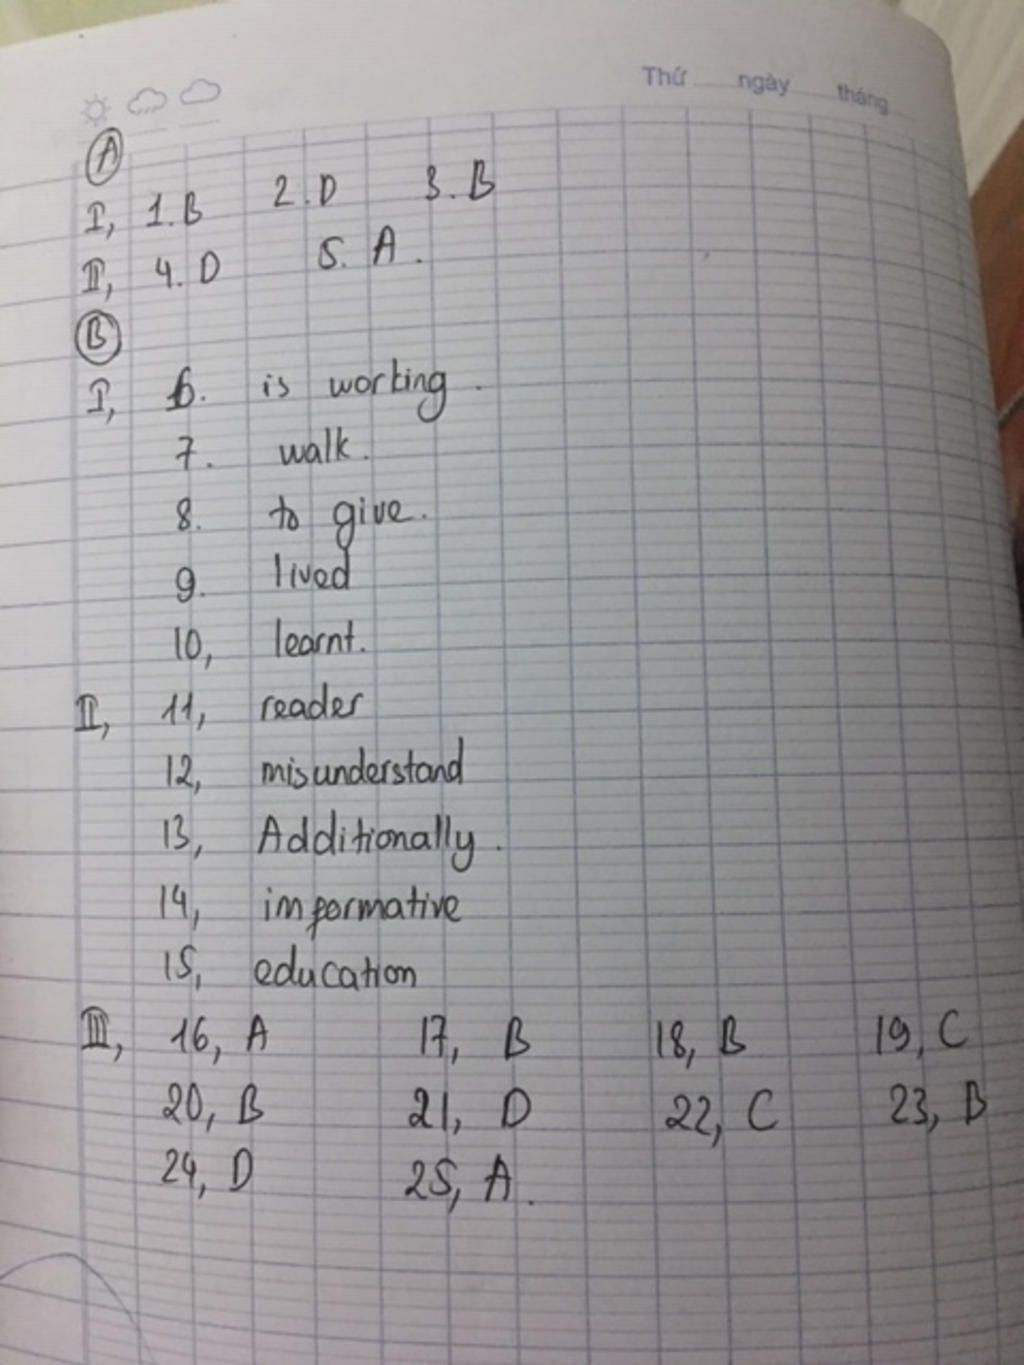 Thứ ngày tháng
A
I, 1.B 2.D 3.B
II, 4.D 5. A.
B
I, 6. is working.
7. walk.
8. to give.
9. lived
10, learnt.
II, 11, reader
12, misunderstand
13, Additionally.
14, informative
15, education
III, 16, A 17, B 18, B 19, C
20, B 21, D 22, C 23, B
24, D 25, A.